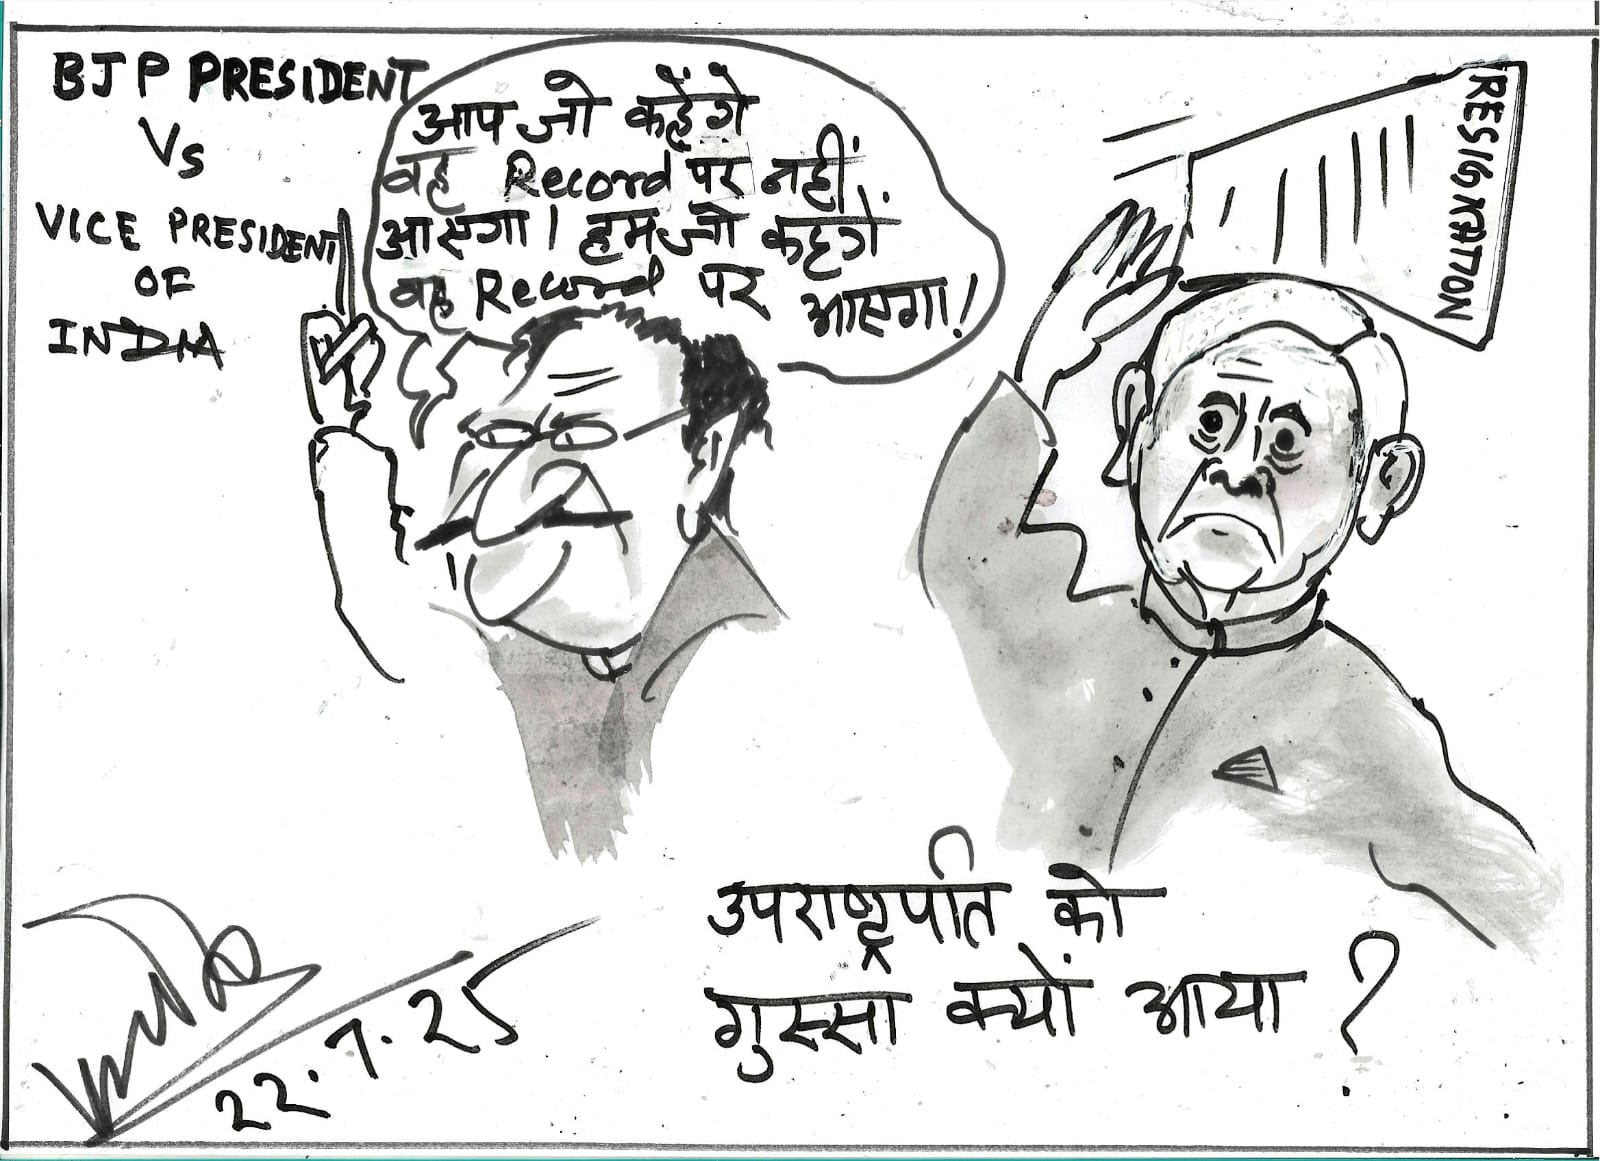 BJP PRESIDENT
Vs
VICE PRESIDENT
OF
INDIA
आप जो कहेंगे
वह Record पर नहीं
आएगा। हम जो कहेगें
वह Record पर आएगा!
RESIGNATION
उपराष्ट्रपति को
गुस्सा क्यों आया ?
22.7.25